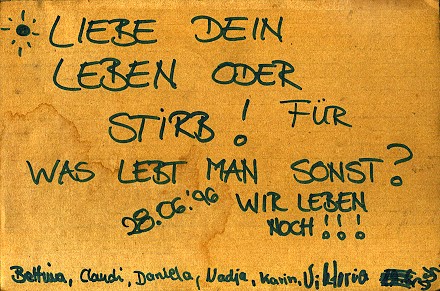 LIEBE DEIN
LEBEN ODER
STIRB! FÜR
WAS LEBT MAN SONST?
28.06.'96 WIR LEBEN
NOCH!!!
Bettina, Claudi, Daniela, Nadja, Karin, Viktoria